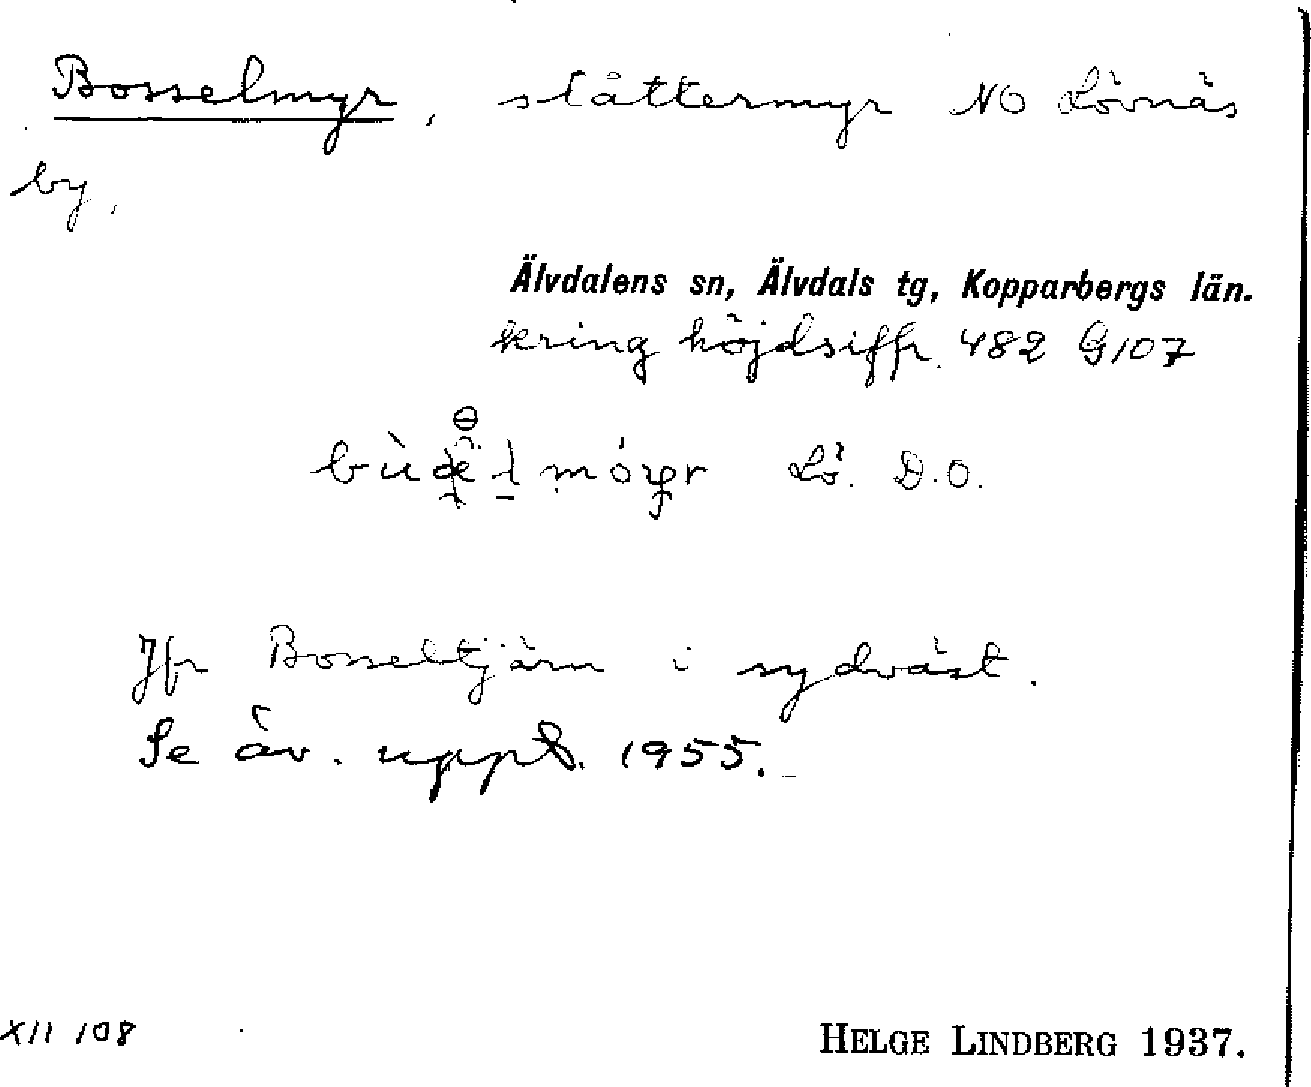 Bosselmyr, slåttermyr NO Lövnäs
by.
Älvdalens sn, Älvdals tg, Kopparbergs län.
kring höjdsiffr. 482 G107
Lö. D.O.
Jfr Bosseltjärn i sydväst.
Se äv. uppt. 1955.
XII 108
HELGE LINDBERG 1937.